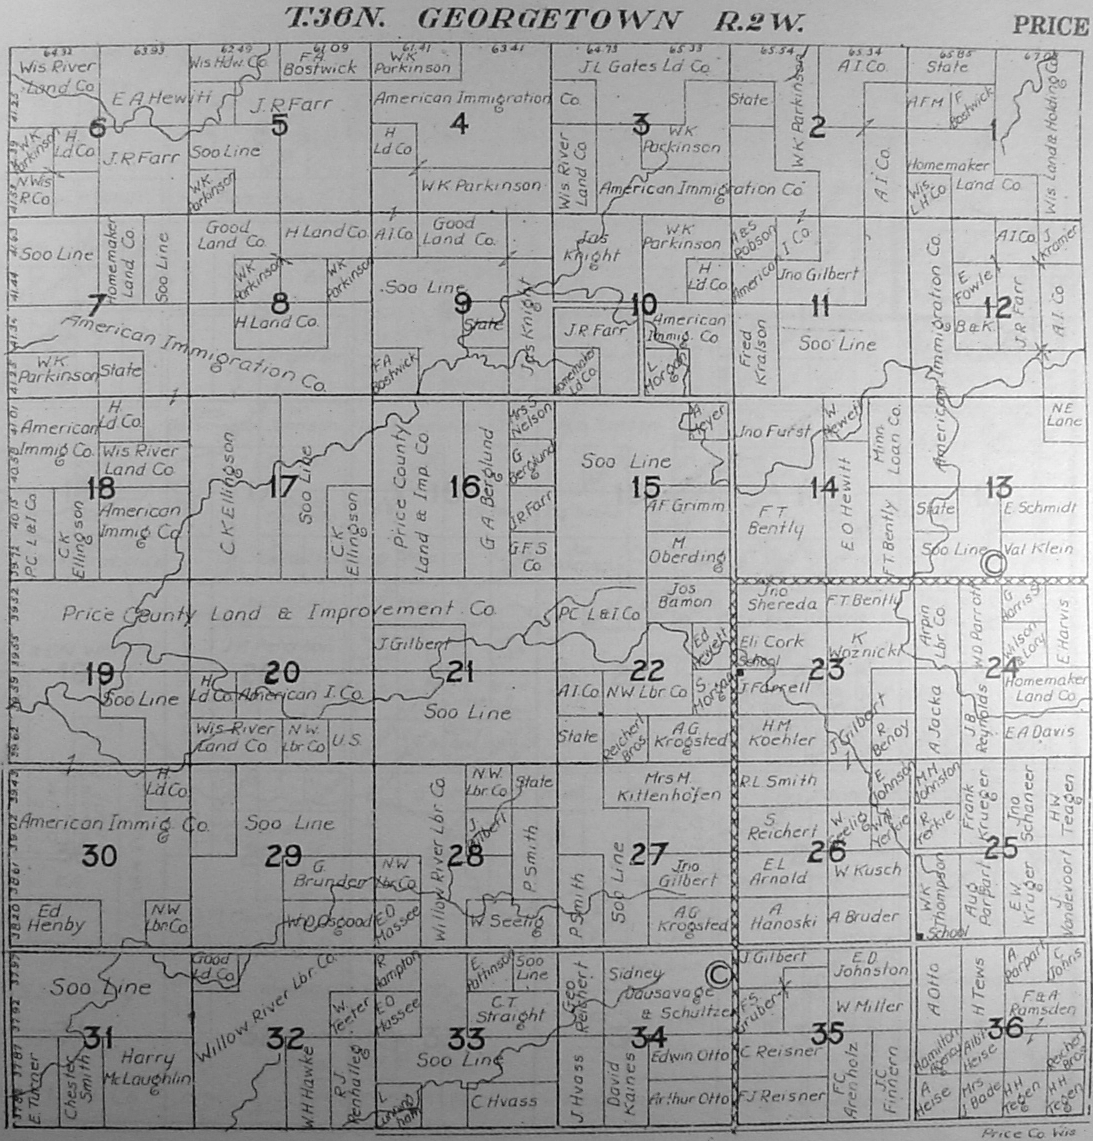 T.36N. GEORGETOWN R.2W.
PRICE
64.32 63.93 62.49 61.09 61.41 63.41 64.73 65.33 65.54 65.34 65.85
Wis River
Land Co
E A Hewitt
6
W K
Parkinson
H
Ld Co
J.R Farr
N Wis
R Co
Wis Hdw Co
F A
Bostwick
J.R Farr
5
Soo Line
W K
Parkinson
W K
Parkinson
American Immigration Co.
4
H
Ld Co
W K Parkinson
J L Gates Ld Co
3
W K
Parkinson
Wis River
Land Co
American Immigration Co
State
W K Parkinson
2
A I Co.
A I Co.
State
A F M
F
Bostwick
1
Homemaker
Land Co
Wis
L H Co
Wis Land & Holding Co
Soo Line
Homemaker
Land Co.
Soo Line
7
American Immigration Co.
W K
Parkinson
State
Good
Land Co.
H Land Co
W K
Parkinson
W K
Parkinson
8
H Land Co.
A I Co
Good
Land Co.
Soo Line
9
State
Jas Knight
F A
Bostwick
Jas
Knight
W K
Parkinson
H
Ld Co
10
J.R Farr
American
Immig Co
Homemaker
Ld Co.
L
Morgan
A & S
Robson
American I Co.
Jno Gilbert
11
Fred
Kralson
Soo Line
American Immigration Co.
A I Co
J
Kramer
E
Fowle
12
B & K
J R Farr
A I Co
American
Immig Co
H
Ld Co
Wis River
Land Co
18
American
Immig Co
P C L & I Co
C K
Ellingson
C K Ellingson
17
Soo Line
C K
Ellingson
Price County
Land & Imp. Co
16
G A Berglund
Mrs S
Nelson
G
Berglund
J R Farr
G F S
Co
Soo Line
A
Meyer
15
A F Grimm
M
Oberding
Jno Furst
W
Hewett
Minn
Loan Co.
14
F T
Bently
E O Hewitt
F T Bently
N E
Lane
13
State
E Schmidt
Soo Line
Val Klein
©
Price County Land & Improvement Co.
19
Soo Line
20
H
Ld Co
American I. Co.
Wis River
Land Co
N.W.
Lbr Co
U.S.
J. Gilbert
21
Soo Line
P C L & I Co
Jos
Bamon
22
Ed
Hewett
A I Co
N W Lbr Co
S
Morgan
State
Reichert
Bros
A G
Krogsted
Jno
Shereda
F T Bently
Eli Cork
School
K
Woznicki
23
J Farrell
H M
Koehler
J Gilbert
R
Benoy
Arpin
Lbr Co.
W D Parrott
G
Harris Sr
Wilson
& Lory
E Harvis
24
Homemaker
Land Co
A Jacka
J B
Reynolds
E A Davis
H
Ld Co
American Immig Co.
30
Ed
Henby
N W
Lbr Co
Soo Line
29
G
Brunder
W D Osgood
N W
Lbr Co
E D
Massee
Willow River Lbr Co
N.W.
Lbr Co
State
J.
Gilbert
28
P Smith
W Seelig
Mrs M.
Kittenhofen
27
P Smith
Soo Line
Jno
Gilbert
A G
Krogsted
R L Smith
E
Johnson
S
Reichert
W
Seelig
26
E L
Arnold
W Kusch
A
Hanoski
A Bruder
M H
Johnston
Frank
Krueger
Jno
Schaneer
H W
Teagen
25
W K
Thompson
School
Aug
Parpart
E W
Kruger
J
Vandevoort
Soo Line
31
E Thizer
Chester
Smith
Harry
McLaughlin
Good
Ld Co
Willow River Lbr Co.
32
W
Teeter
W H Hawke
R J
Penhalleg
R
Hampton
E D
Massee
E
Pattinson
Soo
Line
C.T.
Straight
33
Soo Line
C Hvass
Geo
Reichert
Sidney
Dausavage
& Schultze
©
34
J Hvass
David
Kaines
Edwin Otto
Arthur Otto
J. Gilbert
E.D.
Johnston
F S
Gruber
W Miller
35
C Reisner
F J Reisner
F C
Arenholz
J C
Finnern
A Otto
H Tews
A
Parpart
C
Johns
F & A
Ramsden
36
Hamilton
Albt
Heise
Reichert
Bros
A
Heise
Mrs
J Bade
H H
Tegen
H H
Tegen
Price Co Wis